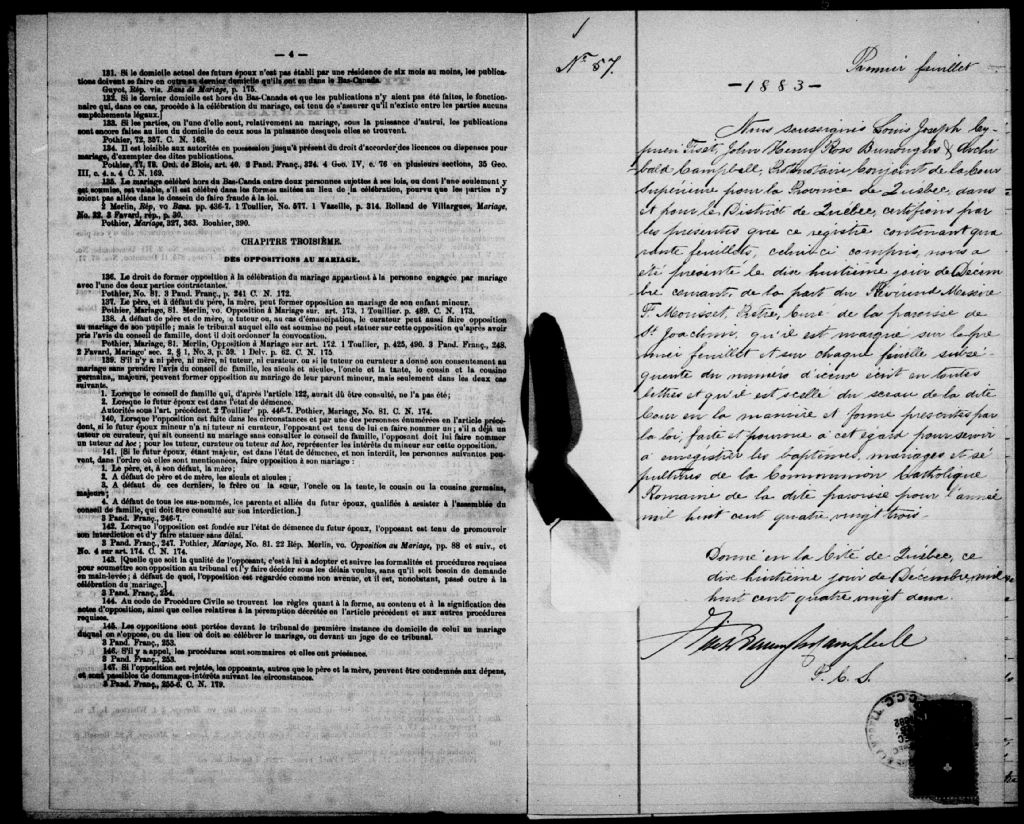 — 4 —
131. Si le domicile actuel des futurs époux n'est pas établi par une résidence de six mois au moins, les publica-
tions doivent se faire en outre au dernier domicile qu'ils ont eu dans le Bas-Canada.
Guyot, Rép. vis. Bans de Mariage, p. 175.
132. Si le dernier domicile est hors du Bas-Canada et que les publications n'y aient pas été faites, le fonction-
naire qui, dans ce cas, procède à la célébration du mariage, est tenu de s'assurer qu'il n'existe entre les parties aucuns
empêchements légaux.]
133. Si les parties, ou l'une d'elles, sont, relativement au mariage, sous la puissance d'autrui, les publications
sont encore faites au lieu du domicile de ceux sous la puissance desquels elles se trouvent.
Pothier, 72, 337. C. N. 168.
134. Il est loisible aux autorités en possession jusqu'à présent du droit d'accorder des licences ou dispenses pour
mariage, d'exempter des dites publications.
Pothier, 77, 78. Ord. de Blois, art. 40. 2 Pand. Franç., 324. 4 Geo. IV, c. 76 en plusieurs sections, 35 Geo.
III, c. 4. s. 4 C. N. 169.
135. Le mariage célébré hors du Bas-Canada entre deux personnes sujettes à ses lois, ou dont l'une seulement y
est soumise, est valable, s'il est célébré dans les formes usitées au lieu de la célébration, pourvu que les parties n'y
soient pas allées dans le dessein de faire fraude à la loi.
2 Merlin, Rép, vo Bans. pp. 436-7. 1 Toullier, No. 577. 1 Vazeille, p. 314. Rolland de Villargues, Mariage,
No. 22. 3 Favard, rép., p. 30.
Pothier, Mariage, 327, 363. Bouhier, 390.
CHAPITRE TROISIÈME.
DES OPPOSITIONS AU MARIAGE.
136. Le droit de former opposition à la célébration du mariage appartient à la personne engagée par mariage
avec l'une des deux parties contractantes.
Pothier, No. 81. 3 Pand. Franç., p. 241 C. N. 172.
137. Le père, et à défaut du père, la mère, peut former opposition au mariage de son enfant mineur.
Pothier, Mariage, 81. Merlin, vo. Opposition à Mariage sur. art. 173. 1 Toullier, p. 489. C. N. 173.
138. A défaut de père et de mère, le tuteur ou, au cas d'émancipation, le curateur peut aussi faire opposition
au mariage de son pupille; mais le tribunal auquel elle est soumise ne peut statuer sur cette opposition qu'après avoir
pris l'avis du conseil de famille, dont il doit ordonner la convocation.
Pothier, Mariage, 81. Merlin, Opposition à Mariage sur art. 172. 1 Toullier, p. 425, 490. 3 Pand. Franç., 248.
2 Favard, Mariage' sec. 2, § 1, No. 3, p. 59. 1 Delv. p. 62. C. N. 175.
139. S'il n'y a ni père, ni mère, ni tuteur, ni curateur, ou si le tuteur ou curateur a donné son consentement au
mariage sans prendre l'avis du conseil de famille, les aïeuls et aïeules, l'oncle et la tante, le cousin et la cousine
germains, majeurs, peuvent former opposition au mariage de leur parent mineur, mais seulement dans les deux cas
suivants.
1. Lorsque le conseil de famille qui, d'après l'article 122, aurait dû être consulté, ne l'a pas été;
2. Lorsque le futur époux est dans l'état de démence.
Autorités sous l'art. précédent. 2 Toullier' pp. 446-7. Pothier, Mariage, No. 81. C. N. 174.
140. Lorsque l'opposition est faite dans les circonstances et par une des personnes énumérées en l'article précé-
dent, si le futur époux mineur n'a ni tuteur ni curateur, l'opposant est tenu de lui en faire nommer un; s'il a déjà un
tuteur ou curateur, qui ait consenti au mariage sans consulter le conseil de famille, l'opposant doit lui faire nommer
un tuteur ad hoc; pour les tuteur, curateur ou tuteur ad hoc, représenter les intérêts du mineur sur cette opposition.
141. [Si le futur époux, étant majeur, est dans l'état de démence, et non interdit, les personnes suivantes peu-
vent, dans l'ordre où elles sont mentionnées, faire opposition à son mariage:
1. Le père et, à son défaut, la mère;
2. A défaut de père et de mère, les aïeuls et aïeules;
3. A défaut de ces derniers, le frère ou la sœur, l'oncle ou la tante, le cousin ou la cousine germains,
majeurs;
4. A défaut de tous les sus-nommés, les parents et alliés du futur époux, qualifiés à assister à l'assemblée du
conseil de famille, qui doit être consulté sur son interdiction.]
3 Pand. Franç., 246-7.
142. Lorsque l'opposition est fondée sur l'état de démence du futur époux, l'opposant est tenu de promouvoir
son interdiction et d'y faire statuer sans délai.
3 Pand. Franç., 247. Pothier, Mariage, No. 81. 22 Rép. Merlin, vo. Opposition au Mariage, pp. 88 et suiv., et
No. 4 sur art. 174. C. N. 174.
143. [Quelque soit la qualité de l'opposant, c'est à lui à adopter et suivre les formalités et procédures requises
pour soumettre son opposition au tribunal et l'y faire décider sous les délais voulus, sans qu'il soit besoin de demande
en main-levée; à défaut de quoi, l'opposition est regardée comme non avenue, et il est, nonobstant, passé outre à la
célébration du mariage.]
3 Pand. Franç., 254.
144. Au code de Procédure Civile se trouvent les règles quant à la forme, au contenu et à la signification des
actes d'opposition, ainsi que celles relatives à la péremption décrétée en l'article précédent et aux autres procédures
requises.
145. Les oppositions sont portées devant le tribunal de première instance du domicile de celui au mariage
duquel on s'oppose, ou du lieu où doit se célébrer le mariage, ou devant un juge de ce tribunal.
3 Pand. Franç., 253.
146. S'il y a appel, les procédures sont sommaires et elles ont préséance.
3 Pand. Franç., 253.
147. Si l'opposition est rejetée, les opposants, autres que le père et la mère, peuvent être condamnés aux dépens,
et sont passibles de dommages-intérêts suivant les circonstances.
3 Pand. Franç., 255-6. C. N. 179.
No 57.
Premier feuillet
— 1883 —
Nous soussignés Louis Joseph Cy-
prien Fiset, John Henry Ross Burroughs & Archi
bald Campbell, Protonotaire Conjoint de la Cour
Supérieure pour la Province de Québec, dans
et pour le District de Québec, certifions par
les présentes que ce registre contenant qua
rante feuillets, celui-ci compris, nous a
été présenté le dix huitième jour de Décem
bre courant, de la part du Révérend Messire
F. Mousset, Prêtre, Curé de la paroisse de
St Joachim, qu'il est marqué sur le pre
mier feuillet et sur chaque feuille subsé
quente du numéro d'icelui écrit en toutes
lettres et qu'il est scellé du sceau de la dite
Cour en la manière et forme prescrites par
la loi, faite et pourvue à cet égard pour servir
à enregistrer les baptêmes, mariages et sé
pultures de la Communion Catholique
Romaine de la dite paroisse pour l'année
mil huit cent quatre vingt trois
Donné en la Cité de Québec, ce
dix huitième jour de Décembre, mil
huit cent quatre vingt deux.
Fiset Burroughs Campbell
P. C. S.